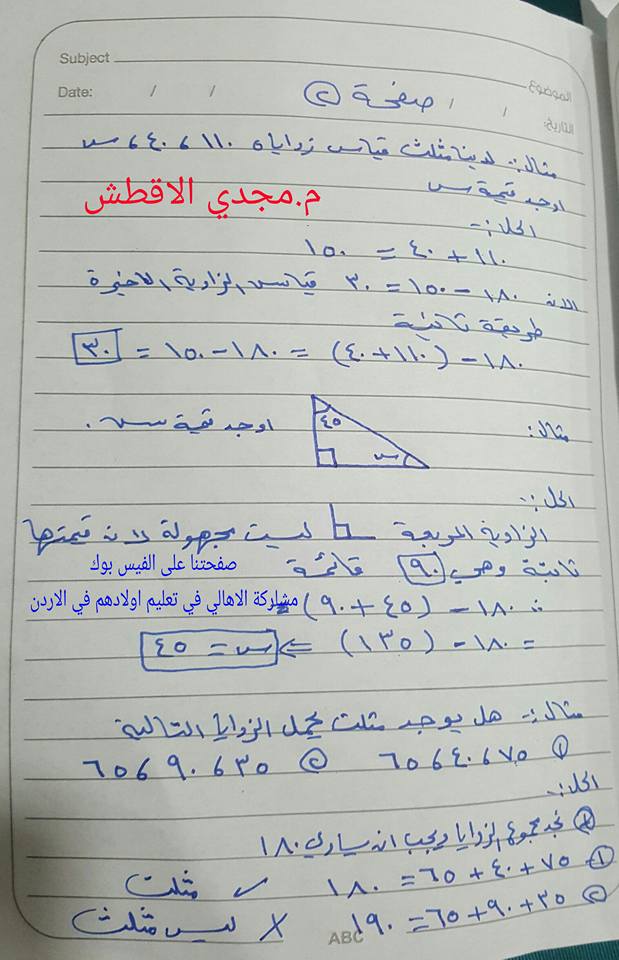 Subject
الموضوع:
Date: / /
صفحة ٢
التاريخ: / /
مثال:- لدينا مثلث قياس زواياه ١١٠ ، ٤٠ ، س
اوجد قيمة س
م.مجدي الاقطش
الحل:-
١١٠ + ٤٠ = ١٥٠
الان ١٨٠ - ١٥٠ = ٣٠ قياس الزاوية الاخيرة
طريقة ثانية
١٨٠ - (١١٠ + ٤٠) = ١٨٠ - ١٥٠ = ٣٠
مثال: اوجد قيمة س .
٤٥
س
الحل:-
الزاوية المربعة ليست مجهولة لانه قيمتها
ثابتة وهي ٩٠ قائمة
صفحتنا على الفيس بوك
مشاركة الاهالي في تعليم اولادهم في الاردن
∴ ١٨٠ - (٤٥ + ٩٠) =
= ١٨٠ - (١٣٥) ⇐ س = ٤٥
مثال:- هل يوجد مثلث يحمل الزوايا التالية
١ ٧٥ ، ٤٠ ، ٦٥ ٢ ٣٥ ، ٩٠ ، ٦٥
الحل:-
* نجد مجموع الزوايا ويجب ان يساوي ١٨٠
١ ٧٥ + ٤٠ + ٦٥ = ١٨٠ ✓ مثلث
٢ ٣٥ + ٩٠ + ٦٥ = ١٩٠ X ليس مثلث
ABC